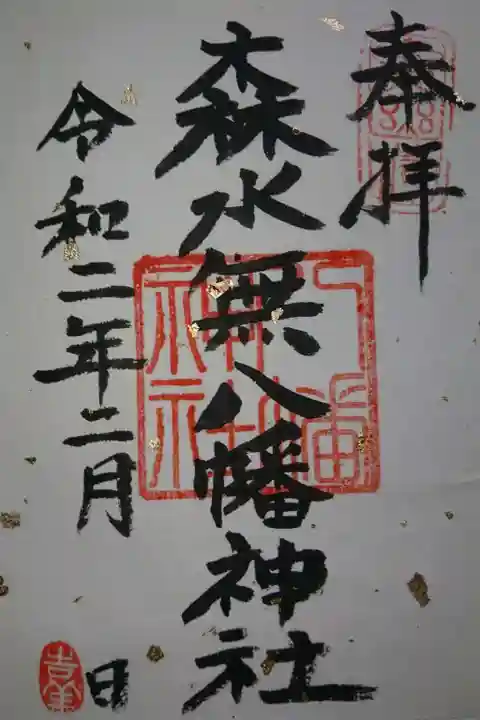 奉拝
森水無八幡神社
令和二年二月
日